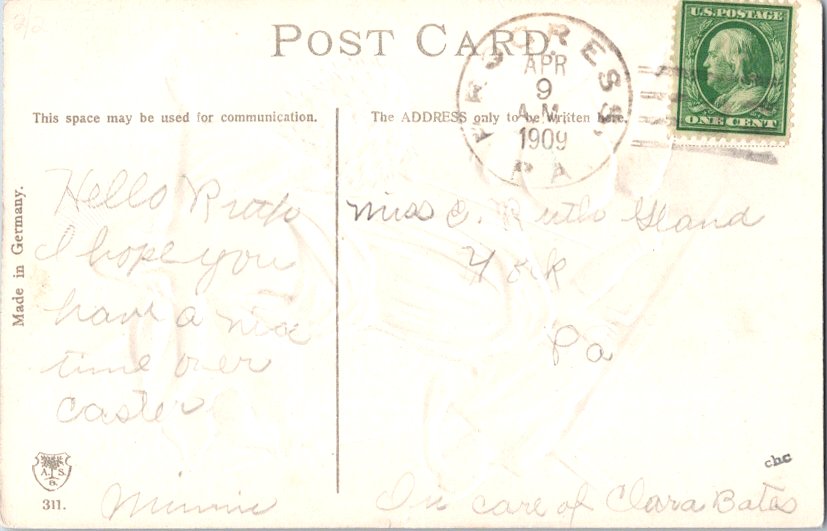 POST CARD
PROGRESS,
APR
9
A.M.
1909
PA
U.S. POSTAGE
ONE CENT
This space may be used for communication.
The ADDRESS only to be written here.
Made in Germany.
Hello Ruth
I hope you
have a nice
time over
easter
Minnie
Miss C. Ruth
York
Pa
In care of Clara Bates
A. S.
B.
311.
chc